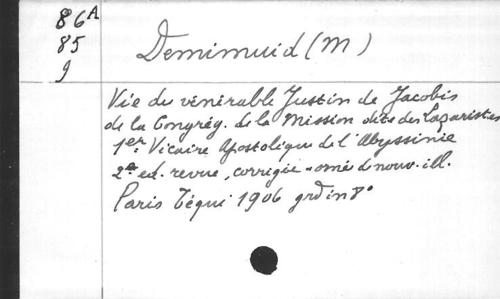 86A
85
9
Demimuid (M)
Vie du vénérable Justin de Jacobis
de la Congrég. de la Mission dite des Lazaristes
1er Vicaire Apostolique de l'Abyssinie
2e ed. revue, corrigée ornée de nouv. ill.
Paris Téqui 1906 grd in 8°